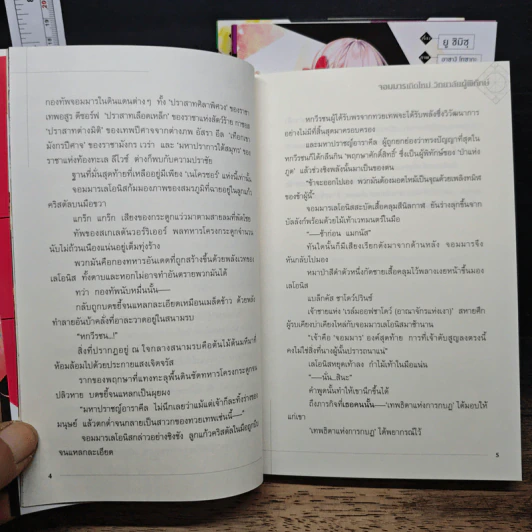 กองทัพจอมมารในดินแดนต่างๆ ทั้ง 'ปราสาทศิลาพิศวง' ของราชา
เทพอสูร คีซอร์ฟ 'ปราสาทเลือดเหล็ก' ของราชาแห่งสัตว์ร้าย กาซอส
'ปราสาทต่างมิติ' ของเทพปีศาจจากต่างภพ อัสรา อีล 'เทือกเขา
มังกรปีศาจ' ของราชามังกร เวร่า และ 'มหาปราการใต้สมุทร' ของ
ราชาแห่งท้องทะเล ลีไวซ์ ต่างก็พบกับความปราชัย
ฐานที่มั่นสุดท้ายที่เหลืออยู่มีเพียง 'เนโครซอร์' แห่งนี้เท่านั้น
จอมมารเลโอนิสก้มมองภาพของสมรภูมิที่ฉายอยู่ในลูกแก้ว
คริสตัลบนมือขวา
แกร๊ก แกร๊ก เสียงของกระดูกแว่วมาตามสายลมที่พัดโชย
ทัพของสเกเลตันวอร์ริเออร์ พลทหารโครงกระดูกจำนวน
นับไม่ถ้วนเนืองแน่นอยู่เต็มทุ่งร้าง
พวกมันคือกองทหารอันเดดที่ถูกสร้างขึ้นด้วยพลังเวทของ
เลโอนิส ทั้งดาบและหอกไม่อาจทำอันตรายพวกมันได้
ทว่า กองทัพนับหมื่นนั้น—
กลับถูกบดขยี้จนแหลกละเอียดเหมือนเมล็ดข้าว ด้วยพลัง
ทำลายอันบ้าคลั่งที่อาละวาดอยู่ในสนามรบ
"หกวีรชน...!"
สิ่งที่ปรากฏอยู่ ณ ใจกลางสนามรบคือต้นไม้ต้นมหึมาที่
ห้อมล้อมไปด้วยประกายแสงเจิดจรัส
รากของพฤกษาที่แทงทะลุพื้นดินซัดทหารโครงกระดูกจน
ปลิวหาย บดขยี้จนแหลกเป็นผุยผง
"มหาปราชญ์อาราคีล ไม่นึกเลยว่าแม้แต่เจ้าก็ละทิ้งร่างของ
มนุษย์ แล้วตกต่ำจนกลายเป็นสาวกของทวยเทพเช่นนี้—"
จอมมารเลโอนิสกล่าวอย่างชิงชัง ลูกแก้วคริสตัลในมือถูกบีบ
จนแหลกละเอียด
4
จอมมารเกิดใหม่ วิทยาลัยผู้พิทักษ์
หกวีรชนผู้ได้รับพรจากทวยเทพจะได้รับพลังซึ่งวิวัฒนาการ
อย่างไม่มีที่สิ้นสุดมาครอบครอง
และมหาปราชญ์อาราคีล ผู้ถูกยกย่องว่าทรงปัญญาที่สุดใน
หกวีรชนก็ได้กลืนกิน 'พฤกษาศักดิ์สิทธิ์' ซึ่งเป็นผู้พิทักษ์ของ 'ป่าแห่ง
ภูต' แล้วช่วงชิงพลังนั้นมาเป็นของตน
"ข้าจะออกไปเอง พวกมันต้องมอดไหม้เป็นจุณด้วยเพลิงทมิฬ
ของข้าผู้นี้"
จอมมารเลโอนิสสะบัดเสื้อคลุมสีนิลกาฬ ยันร่างลุกขึ้นจาก
บัลลังก์พร้อมด้วยไม้เท้าเวทมนตร์ในมือ
"—ช้าก่อน แมกนัส"
ทันใดนั้นก็มีเสียงเรียกดังมาจากด้านหลัง จอมมารจึง
หันกลับไปมอง
หมาป่าสีดำตัวหนึ่งกัดชายเสื้อคลุมไว้พลางเงยหน้าขึ้นมอง
เลโอนิส
แบล็กคัส ชาโดว์ปรินซ์
เจ้าชายแห่ง 'เรล์มออฟชาโดว์ (อาณาจักรแห่งเงา)' สหายศึก
ผู้รบเคียงบ่าเคียงไหล่กับจอมมารเลโอนิสมาช้านาน
"เจ้าคือ 'จอมมาร' องค์สุดท้าย การที่เจ้าดับสูญลงตรงนี้
คงไม่ใช่สิ่งที่นางผู้นั้นปรารถนาแน่"
เลโอนิสหยุดเท้าลง กำไม้เท้าในมือแน่น
"—นั่น...สินะ"
คำพูดนั้นทำให้เขานึกขึ้นได้
ถึงภารกิจที่เธอคนนั้น—'เทพธิดาแห่งการกบฏ' ได้มอบให้
แก่เขา
'เทพธิดาแห่งการกบฏ' ได้พยากรณ์ไว้
5
ยู ชิมิซุ